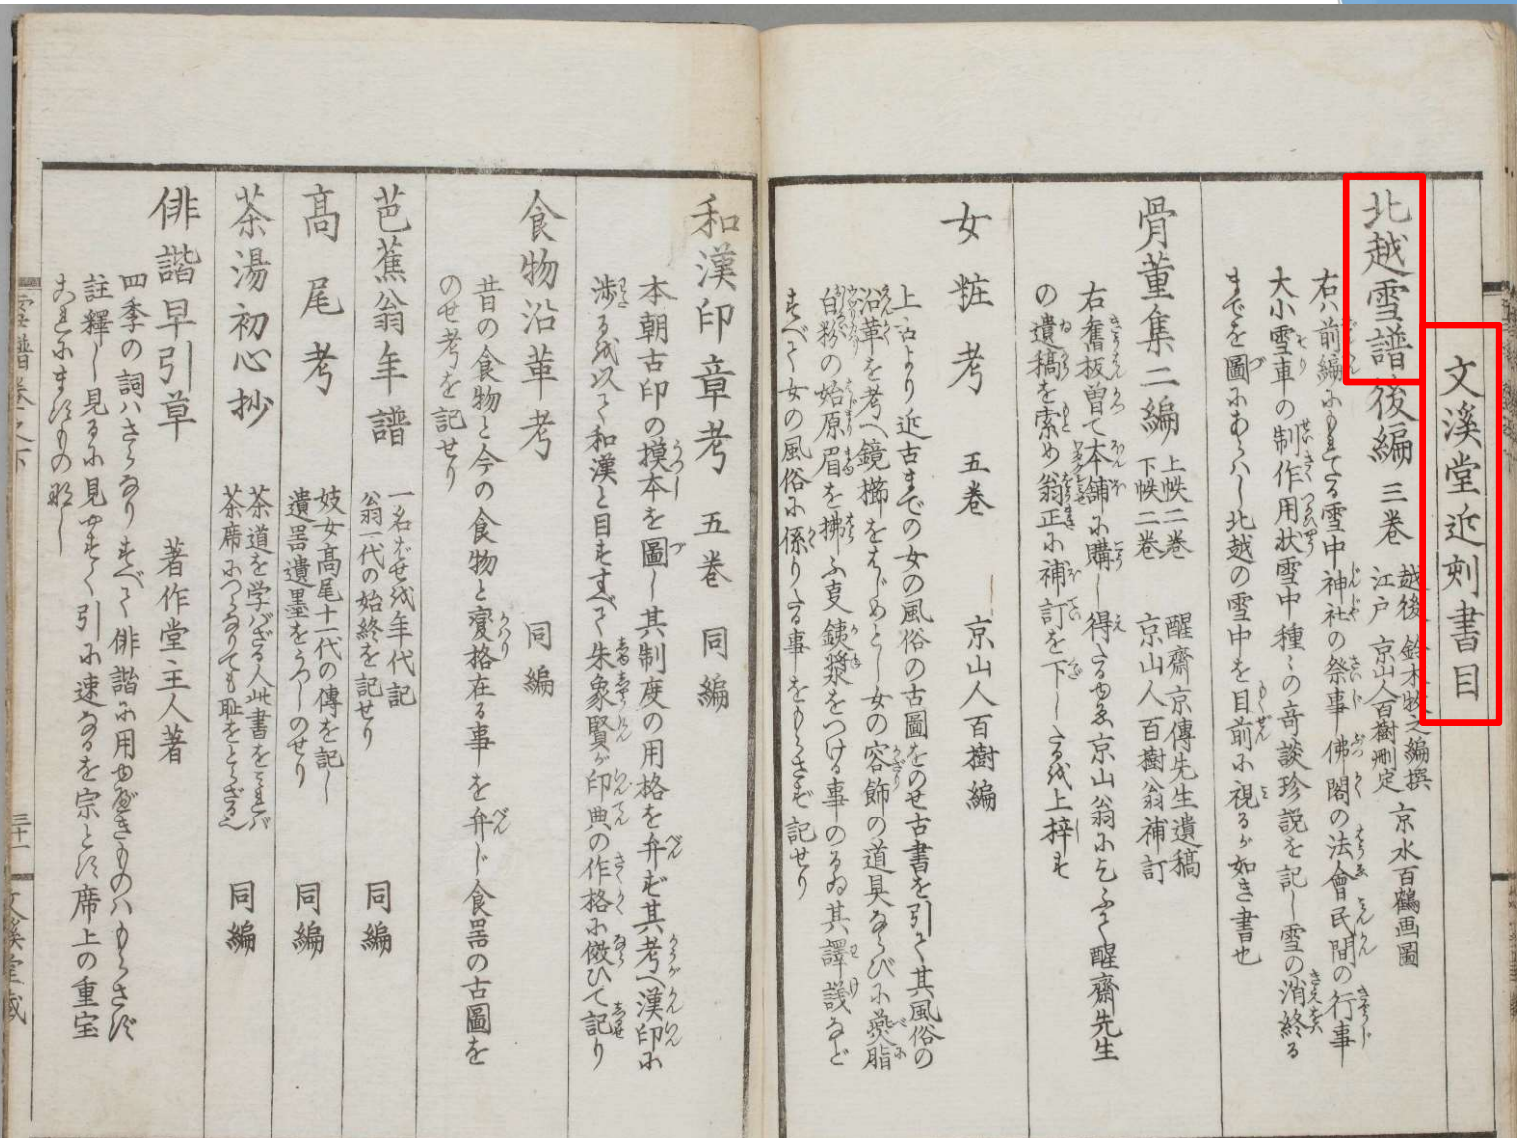 文溪堂近刻書目
北越雪譜後編 三巻
越後 鈴木牧之編撰
江戸 京山人百樹刪定
京水百鶴画圖
右ハ前編にもれたる雪中神社の祭事佛閣の法會民間の行事
大小雪車の制作用状雪中種〻の奇談珍説を記し雪の消終る
までを圖にあらハし北越の雪中を目前に視るが如き書也
骨董集二編
上帙二巻
下帙二巻
醒齋京傳先生遺稿
京山人百樹翁補訂
右舊板曽て本舗に購し得たるゆゑ京山翁に乞ふて醒齋先生
の遺稿を索め翁正に補訂を下したるを上梓す
女粧考 五巻 京山人百樹編
上古より近古までの女の風俗の古圖をのせ古書を引て其風俗の
沿革を考へ鏡櫛をはじめとし女の容飾の道具ならびに𦠄脂
白粉の始原眉を拂ふ㕝鉄漿をつける事のるゐ其譯義など
すべて女の風俗に係りたる事をもらさず記せり
和漢印章考 五巻 同編
本朝古印の摸本を圖し其制度の用格を弁ず其考へ漢印に
渉るを以て和漢と目すすべて朱象賢が印典の作格に傚ひて記り
食物沿革考 同編
昔の食物と今の食物と變格在る事を弁じ食噐の古圖を
のせ考を記せり
芭蕉翁年譜
一名ばせを年代記
翁一代の始終を記せり
同編
髙尾考
妓女髙尾十一代の傳を記し
遺噐遺墨をうつしのせり
同編
茶湯初心抄
茶道を学バざる人此書をミれバ
茶席につらなりても耻をとらざるべし
同編
俳諧早引草 著作堂主人著
四季の詞ハさらなりすべて俳諧に用ゆべきものハもらさず
註釋し見るに見やすく引に速なるを宗とす席上の重宝
これにますもの那し
雪譜巻之下
三十一
文溪堂蔵